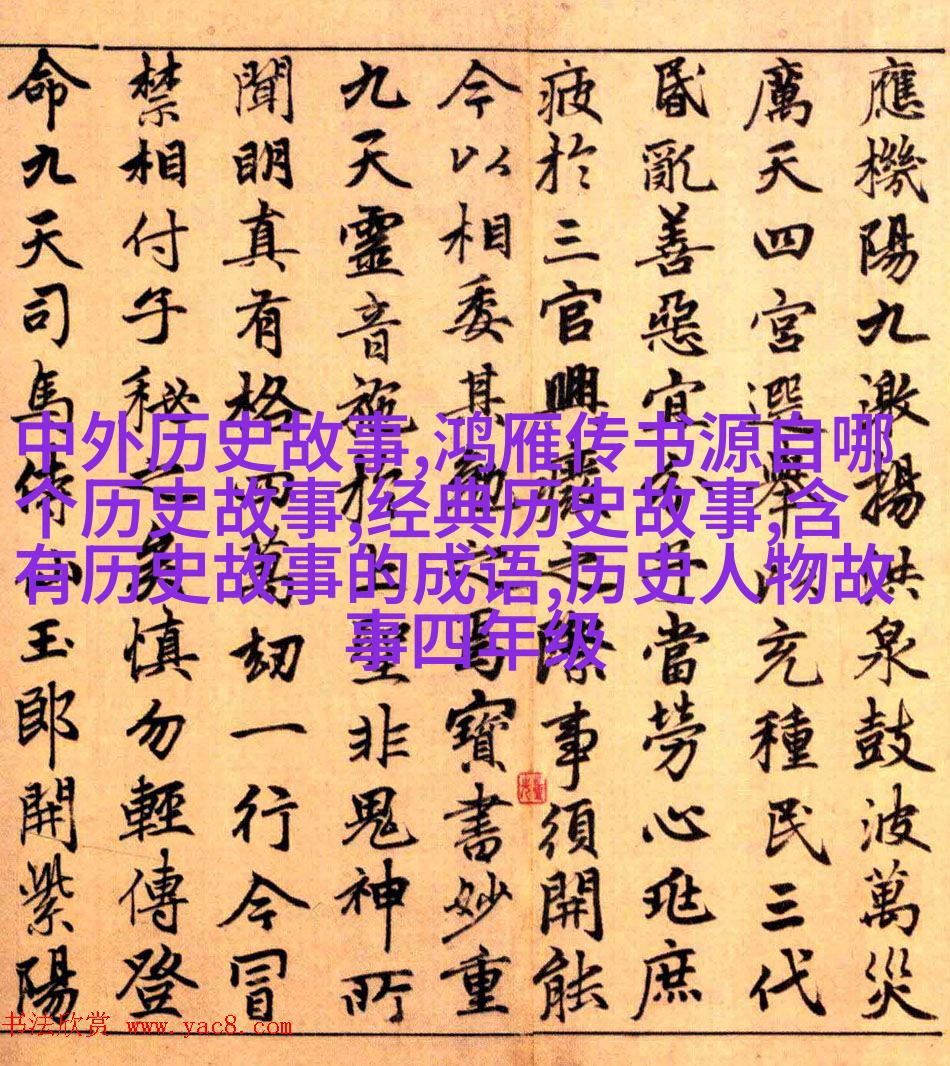 應機陽九激揚洪泉鼓波萬災
厲天四宮選舉充種民三代
昬亂善惡宜分子當勞心兆庶
疲於三官興之際事須開能
今以相委其勉之焉寶書妙重
九天靈音施於上聖非鬼神所
聞明真有格四萬劫一行今冒
禁相付子秘之矣慎勿輕傳登
命九天司馬侍仙玉郎開紫陽
中外历史故事,鸿雁传书源自哪
个历史故事,经典历史故事,含
有历史故事的成语,历史人物故
事四年级
书法欣赏 www.yac8.com